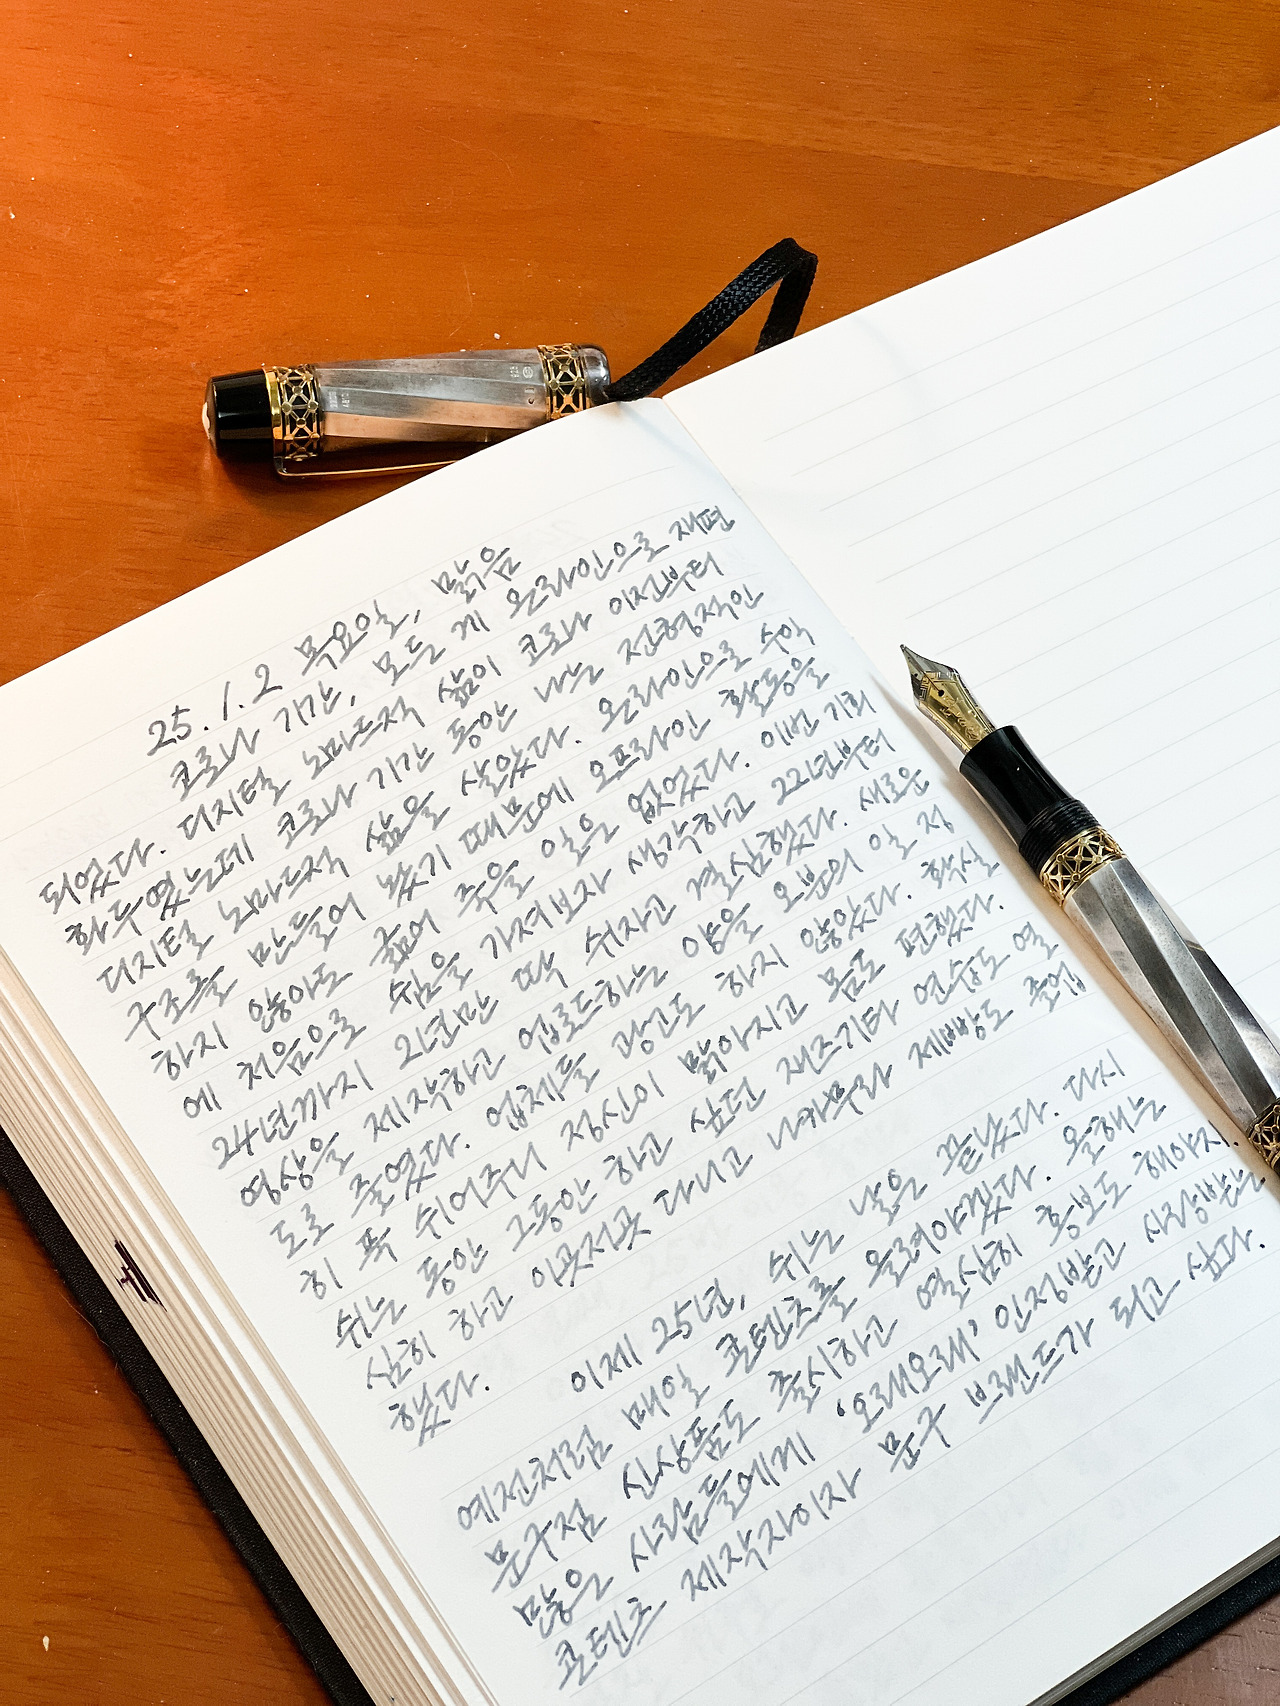 25. 1. 2 목요일, 맑음
코로나 기간, 모든 게 온라인으로 재편
되었다. 디지털 노마드적 삶이 코로나 이전부터
화두였는데 코로나 기간 동안 나는 전형적인
디지털 노마드적 삶을 살았다. 온라인으로 수익
구조를 만들어 놨기 때문에 오프라인 활동을
하지 않아도 굶어 죽을 일은 없었다. 이번 기회
에 처음으로 쉼을 가져보자 생각하고 22년부터
24년까지 2년만 딱 쉬자고 결심했다. 새로운
영상을 제작하고 업로드하는 양을 오분의 일 정
도로 줄였다. 업체들 광고도 하지 않았다. 확실
히 푹 쉬어주니 정신이 맑아지고 몸도 편했다.
쉬는 동안 그동안 하고 싶던 재즈기타 연습도 열
심히 하고 이곳저곳 다니고 나카무라 제빵도 졸업
했다.
이제 25년, 쉬는 날은 끝났다. 다시
예전처럼 매일 콘텐츠를 올려야겠다. 올해는
문구점 신상품도 출시하고 열심히 홍보도 해야지.
많은 사람들에게 '오래오래' 인정받고 사랑받는
콘텐츠 제작자이자 문구 브랜드가 되고 싶다.
925